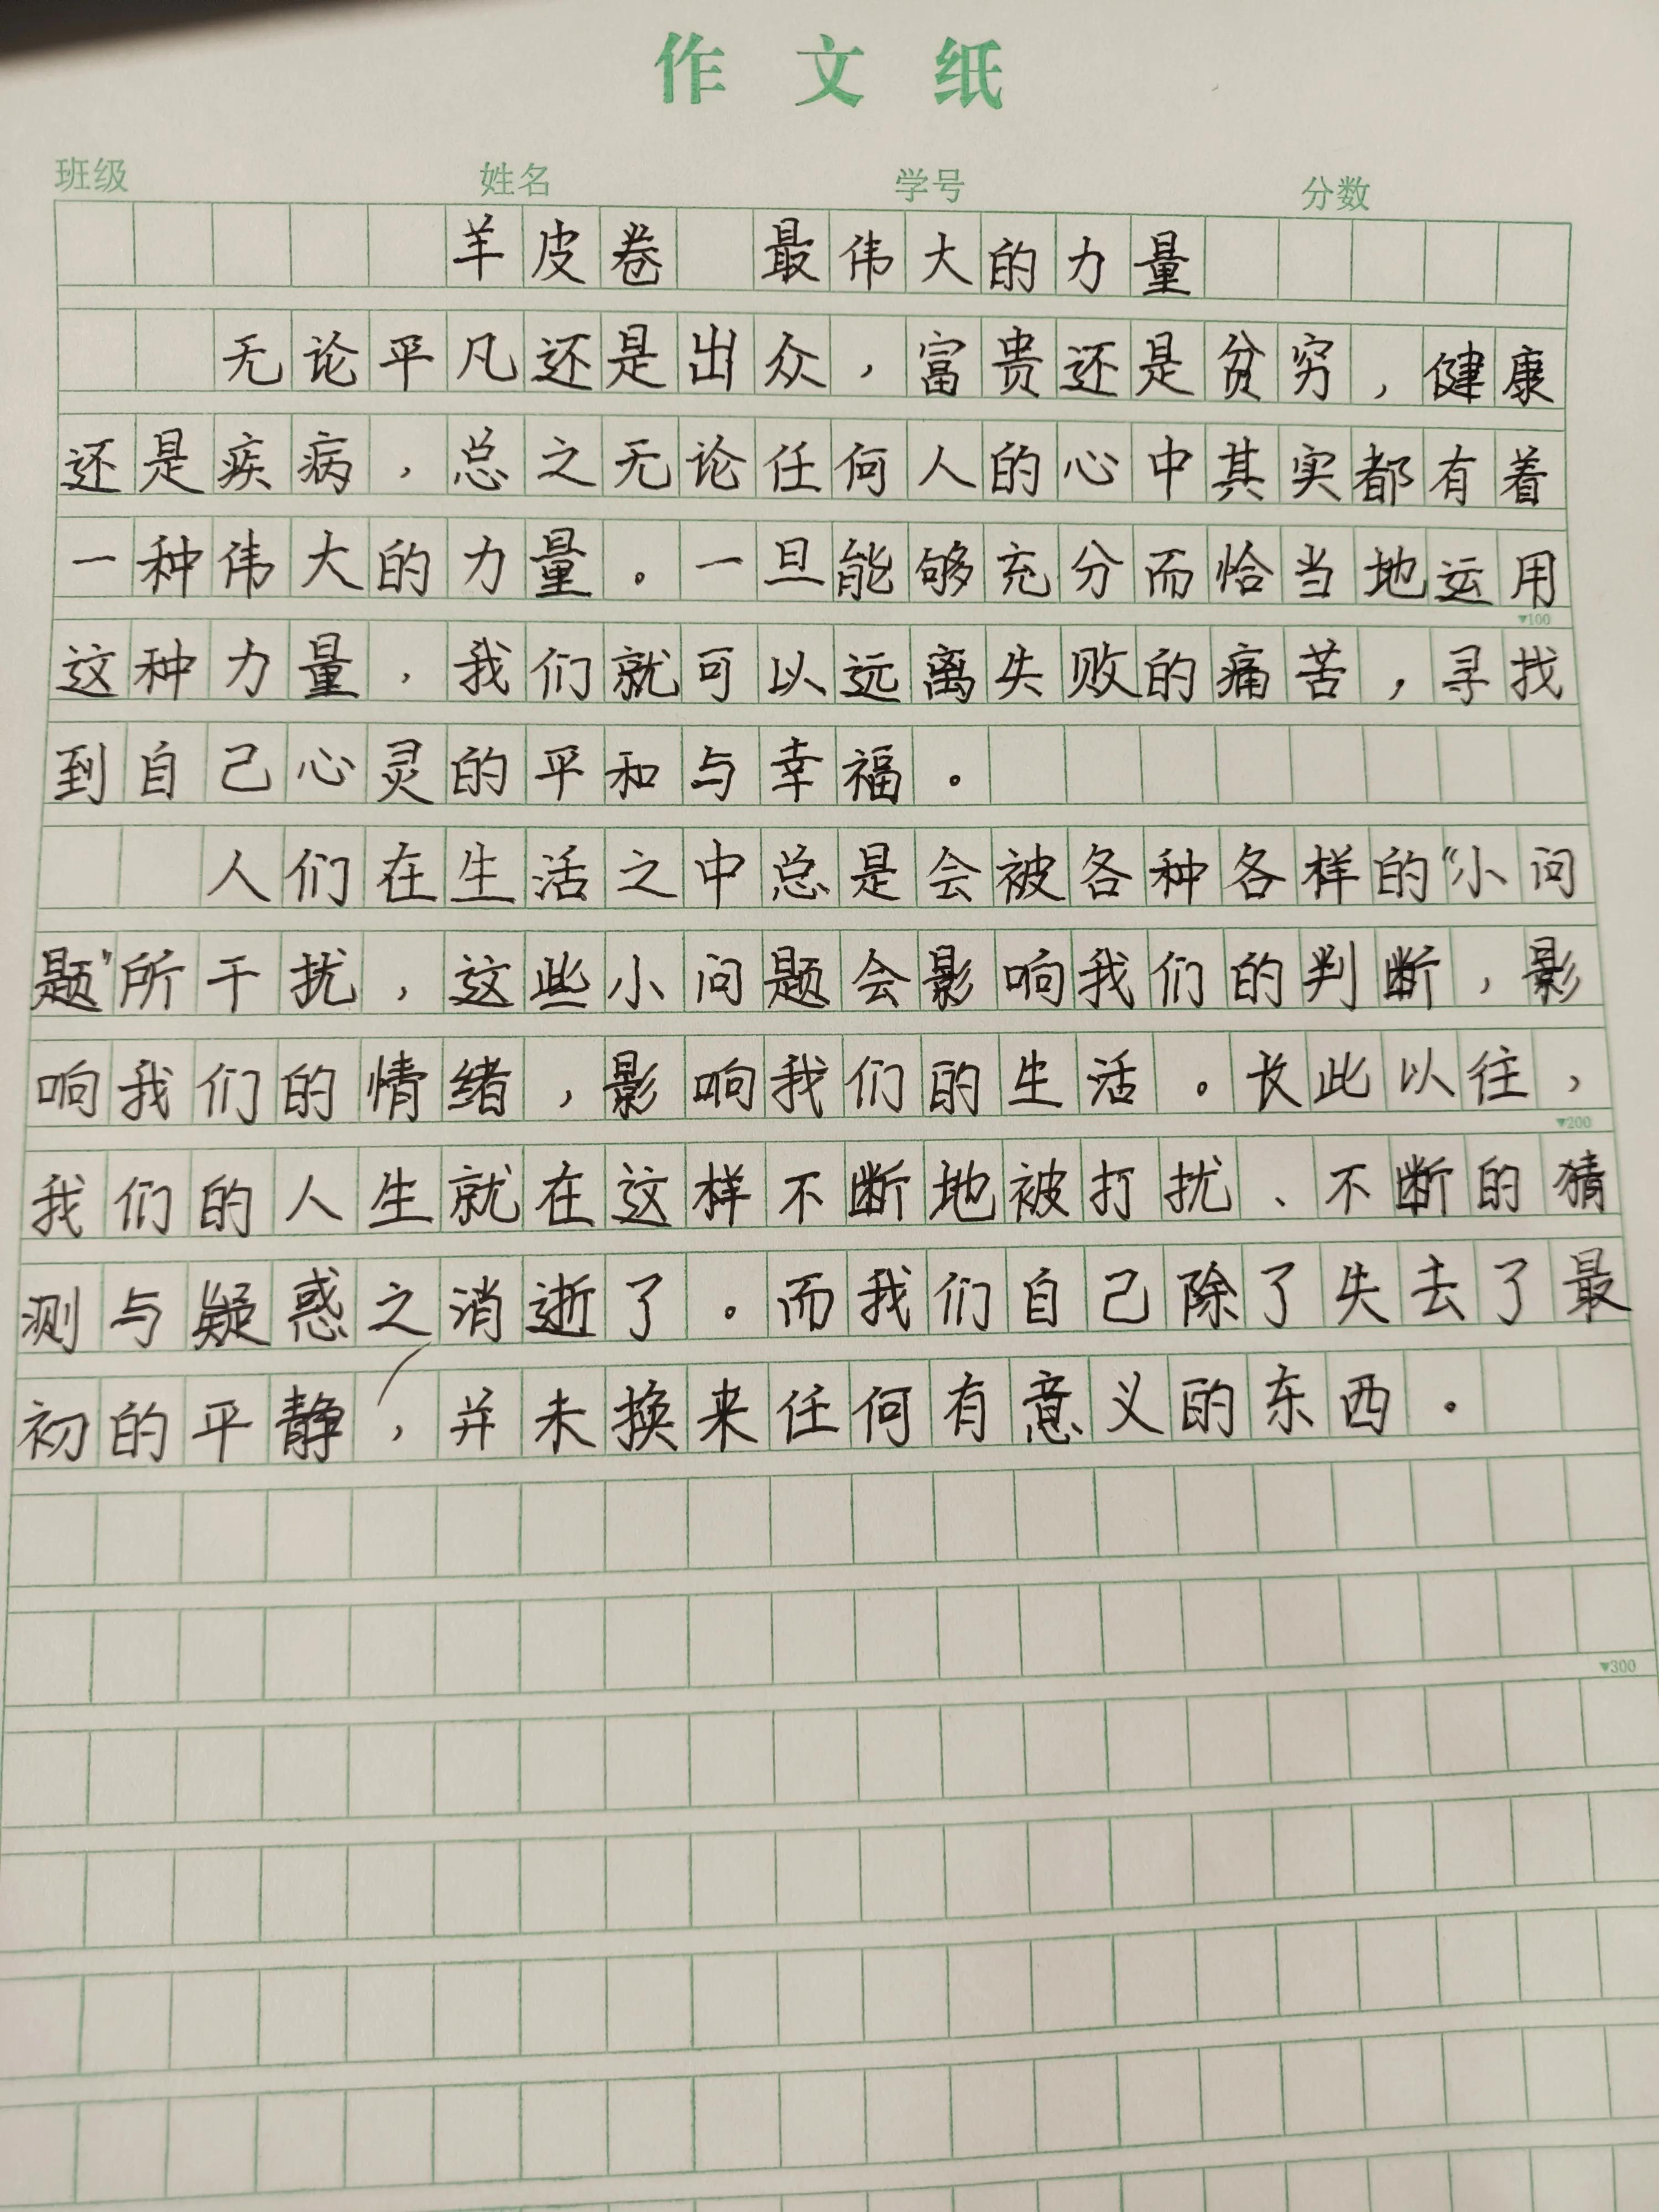 作文纸
班级 姓名 学号 分数
羊皮卷 最伟大的力量
无论平凡还是出众，富贵还是贫穷，健康
还是疾病，总之无论任何人的心中其实都有着
一种伟大的力量。一旦能够充分而恰当地运用
▼100
这种力量，我们就可以远离失败的痛苦，寻找
到自己心灵的平和与幸福。
人们在生活之中总是会被各种各样的“小问
题”所干扰，这些小问题会影响我们的判断，影
响我们的情绪，影响我们的生活。长此以往，
▼200
我们的人生就在这样不断地被打扰、不断的猜
测与疑惑之消逝了。而我们自己除了失去了最
初的平静，并未换来任何有意义的东西。
▼300